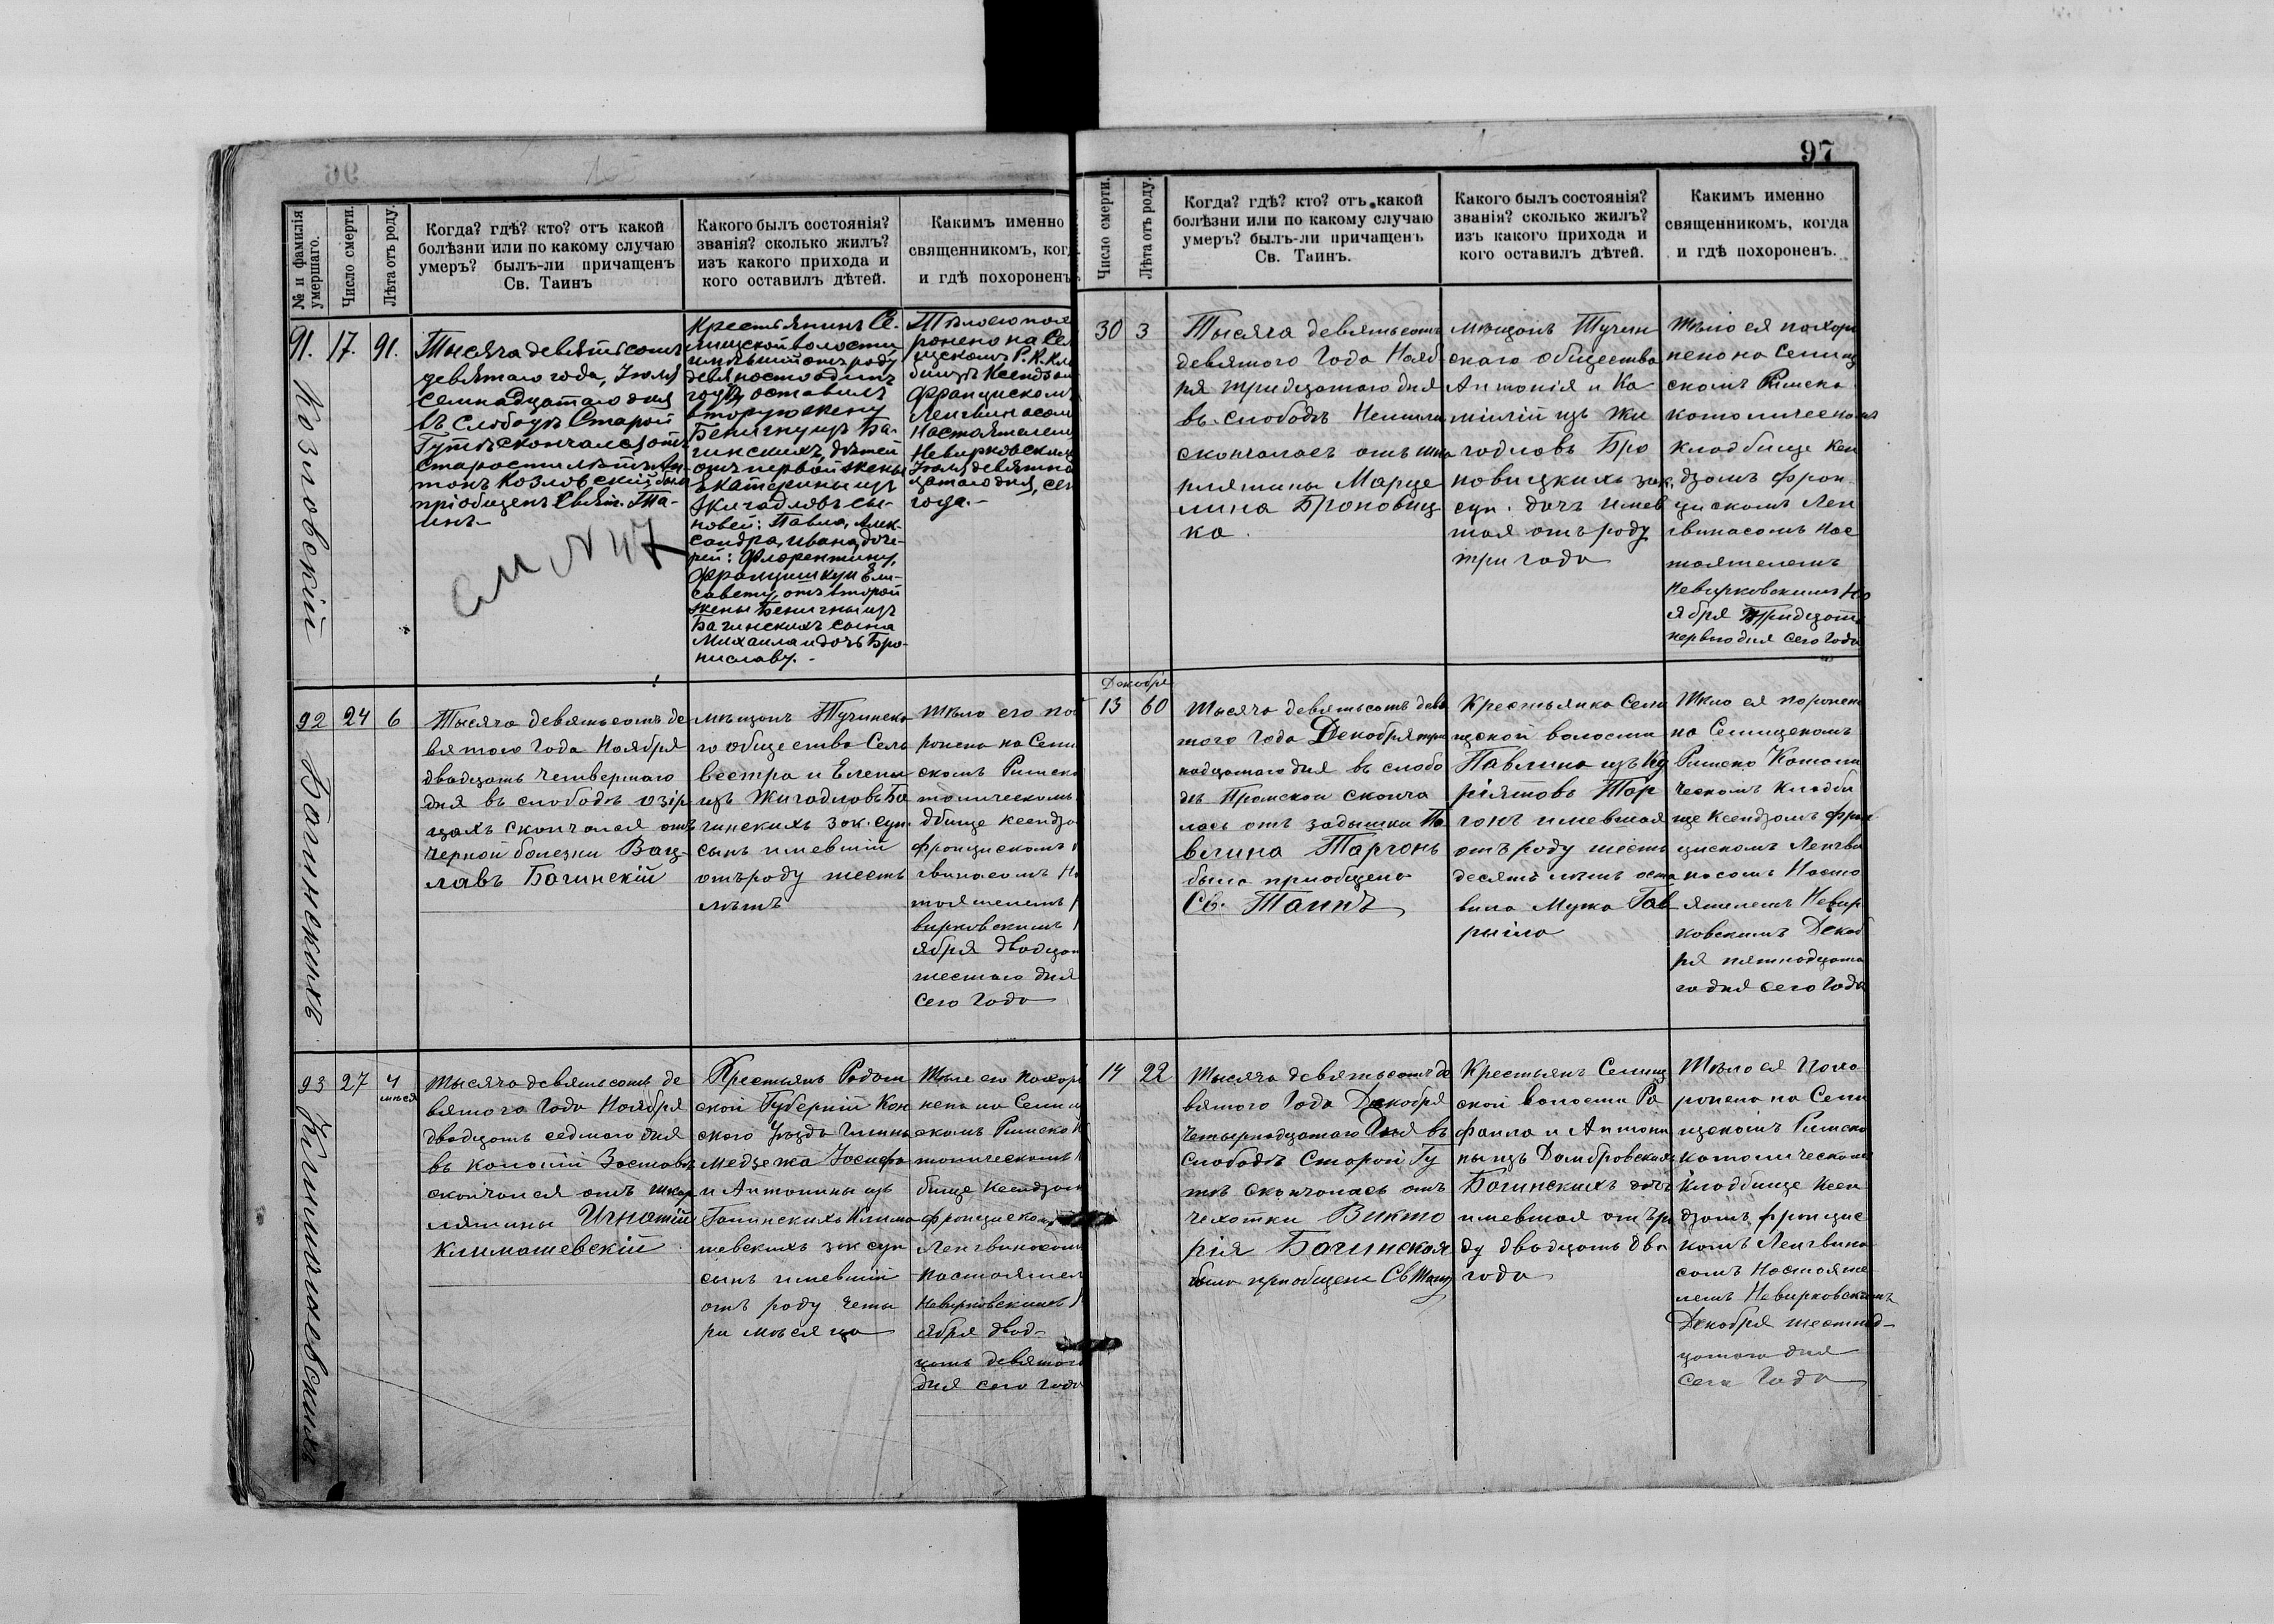 97
№ и фамилія умершаго.
Число смерти.
Лѣта отъ роду.
Когда? гдѣ? кто? отъ какой
болѣзни или по какому случаю
умеръ? былъ-ли причащенъ
Св. Таинъ
Какого былъ состоянія?
званія? сколько жилъ?
изъ какого прихода и
кого оставилъ дѣтей.
Каким​ъ именно
священникомъ, ког
и гдѣ похороненъ
91. 17. 91.
Козловскій
Тысяча девятьсотъ
девятаго года, Іюля
семнадцатаго дня
въ Слободѣ Старой
Гутѣ скончался отъ
старости лѣтъ Ан-
тонъ Козловскій былъ
пріобщенъ Свят. Та-
инъ.
см N 47
Крестьянинъ Се-
лищской волости
имѣвшій отъ роду
девяносто одинъ
годъ оставилъ
вторую жену
Бенигну изъ Ба-
гинскихъ, дѣтей
отъ первой жены
Екатерины изъ
Жигадловъ сы-
новей: Павла, Алек-
сандра, Ивана, доче-
рей: Флорентину,
Францишку и Ели-
савету, отъ второй
жены Бенигны изъ
Багинскихъ сына
Михаила и дочь Бро-
ниславу.
Тѣло его похо
ронено на Сел
ищскомъ Р. К. Кла
бищѣ Ксендзом
Францискомъ
Ленгвинасом
Настоятелем
Невирковским
Іюля девятна
цатаго дня, сег
года.
92 24 6
Багинскихъ
Тысяча девятьсотъ де
вятого Года Ноября
двадцать четвертаго
дня въ слободѣ озір
цахъ скончался отъ
черной болезни Вац
лавъ Багинскій
мѣщанъ Тучинска
го общества Сель
вестра и Елены
изъ Жигадловъ Ба
гинскихъ зак. суп.
сынъ имевшій
отъ роду шесть
лѣтъ
Тѣло его по
ронена на Сели
скомъ Римско
толическомъ
дбище ксендзо
францискомъ
гвинасомъ На
тоятелемъ
вирковскимъ
ября двадцат
шестаго дня
сего Года
93 27 4
мѣсяц
Климашевскихъ
Тысяча девятьсотъ де
вятого Года Ноября
двадцать седмаго дня
въ колоній Заставъ
скончался отъ шкар
лятины Игнатій
Климашевскій
Крестьянъ Радом
ской Губерній Кон
ского уѣзда Гмины
медзежа Іосифа
и Антонины изъ
Клима
шевскихъ зак суп
сынъ имевшій
отъ роду четы
ри мѣсяца
Тѣло его похоро
нена на Селищ
скомъ Римско К
толическомъ
бище Ксендзом
францискомъ
Ленгвинасом
настоятел
Невирковскимъ
оября двад-
цать девятого
дня сего года
Число смерти.
Лѣта отъ роду.
Когда? гдѣ? кто? отъ какой
болѣзни или по какому случаю
умеръ? былъ-ли причащенъ
Св. Таинъ.
Какого былъ состоянія?
званія? сколько жилъ?
изъ какого прихода и
кого оставилъ дѣтей.
Какимъ именно
священникомъ, когда
и гдѣ похороненъ.
30 3
Тысяча девятьсотъ
девятого Года Нояб
ря тридцатаго дня
въ слободѣ
скончалась отъ шка
рлятины Марце
лина Броновиц
ка
мѣщанъ Тучин
скаго общества
Антонія и Ка
милій изъ Жи
годловъ Бро
новицкихъ зак.
суп. дочь имев
шая отъ роду
три года
Тѣло ея похоро
нено на Селищ
скомъ Римско
католическомъ
кладбище Ксен
дзомъ Фран
цискомъ Лен
гвинасомъ Нас
тоятелемъ
Невирковскимъ Но
ября Тридцать
перваго дня сего Года
Декабря
13 60
Тысяча девятьсотъ девя
таго Года Декабря три
надцатаго дня въ слобо
дѣ Пранской сконча
лась отъ задышки Па
влина Таргонь
была приобщена
Св. Таинъ
Крестьянка Сели
щской волости
Павлина изъ Ку
ріятовъ Тар
гонъ имевшая
отъ роду шесть
десять лѣтъ оста
вила Мужа Гав
рыіла
Тѣло ея поронено
на Селищскомъ
Римско Католи
ческомъ Кладби
ще Ксендзомъ фран
цискомъ Ленгви
насом Насто
ятелемъ Невир
ковскимъ Декаб
ря пятнадцата
го дня сего Года
14 22
Тысяча девятьсотъ де
вятого Года Декабря
четырнадцатаго Дня въ
Слободѣ Старой Гу
тѣ скончалась отъ
чехотки Викто
рія Багинская
была приобщена Св Таин
Крестьянъ Селищ
ской волости Ра
фаила и Антони
ны изъ Домбровскихъ
Багинскихъ дочь
имевшая отъ ро
ду двадцать два
года
Тѣло ея похо
ронена на Сели
щскомъ Римско
католическом
Кладбище Ксен
дзомъ францис
комъ Ленгвина
сомъ Настояте
лемъ Невирковскимъ
Декабря шестнад-
цатаго дня
сего Года